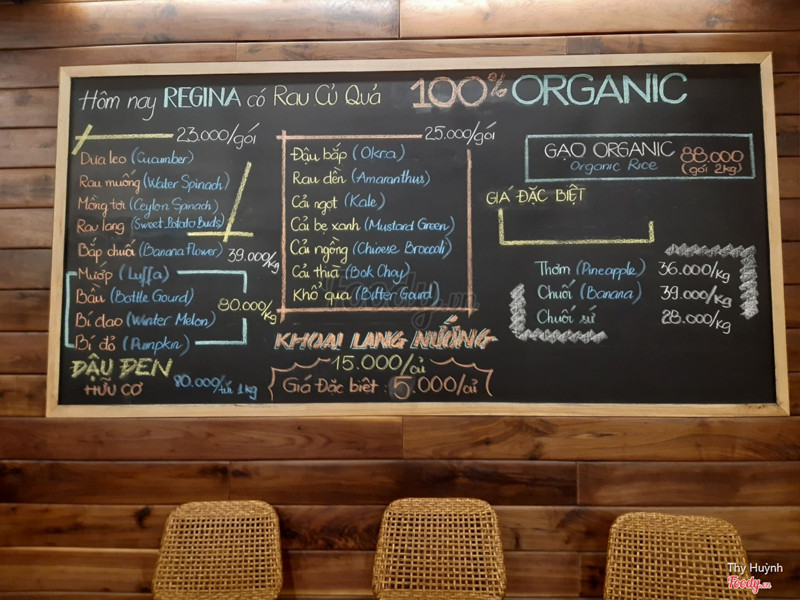 Hôm nay REGINA có Rau Củ Quả 100% ORGANIC
23.000/gói
Dưa leo (Cucumber)
Rau muống (Water Spinach)
Mồng tơi (Ceylon Spinach)
Rau lang (Sweet Potato Buds)
Bắp chuối (Banana Flower) 39.000/kg
Mướp (Luffa)
Bầu (Bottle Gourd)
80.000/kg
Bí đao (Winter Melon)
Bí đỏ (Pumpkin)
ĐẬU ĐEN
HỮU CƠ 80.000/túi 1kg
25.000/gói
Đậu bắp (Okra)
Rau dền (Amaranthus)
Cải ngọt (Kale)
Cải bẹ xanh (Mustard Green)
Cải ngồng (Chinese Broccoli)
Cải thìa (Bok Choy)
Khổ qua (Bitter Gourd)
KHOAI LANG NƯỚNG
15.000/củ
Giá Đặc biệt: 5.000/củ
GẠO ORGANIC 88.000
Organic Rice (gói 2kg)
GIÁ ĐẶC BIỆT
Thơm (Pineapple) 36.000/kg
Chuối (Banana) 39.000/kg
Chuối sứ 28.000/kg
Foody.vn
Thy Huỳnh
Foody.vn